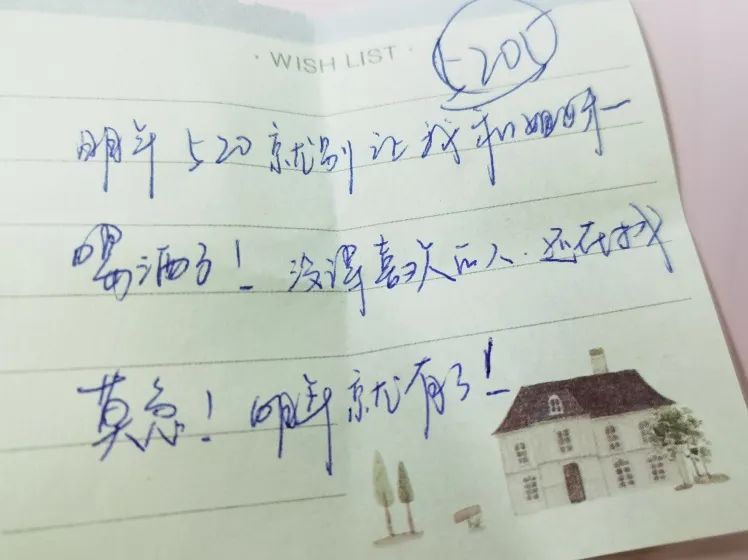 · WISH LIST ·
520
明年520就别让我和姐妹一
喝酒了！没喜欢的人.还在找
莫急！明年就有了！